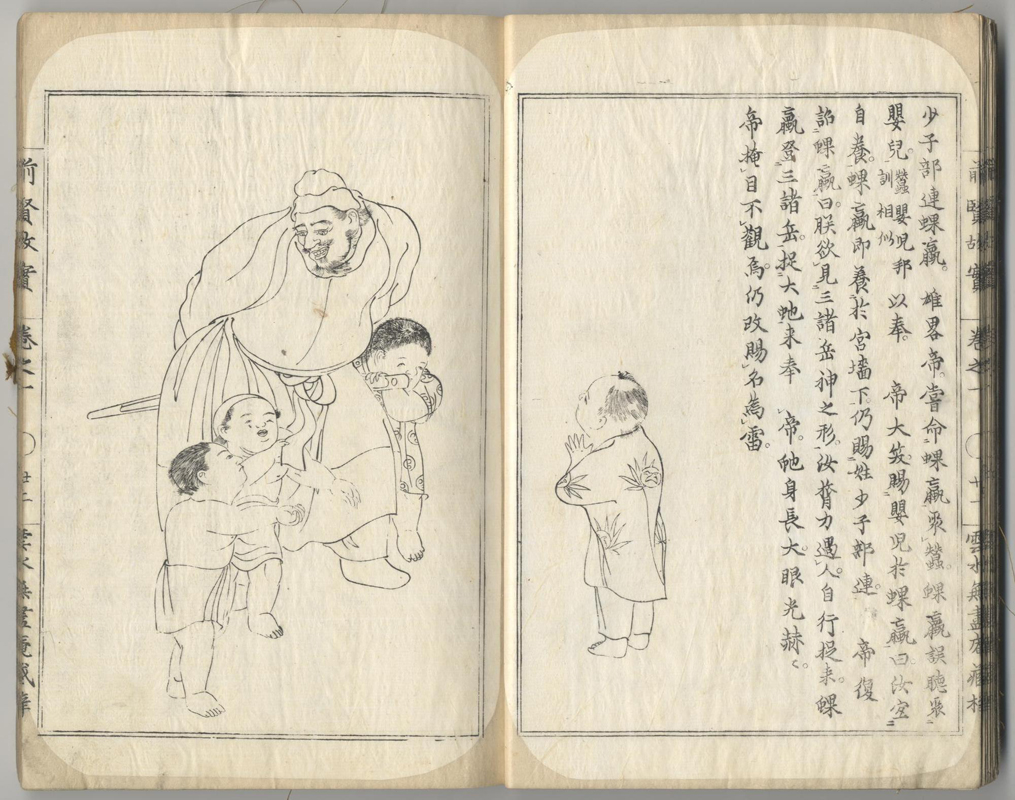 少子部連蜾蠃。雄畧帝、嘗命蜾蠃聚蠶。蜾蠃誤聽聚
嬰兒。蠶嬰兒邦訓相似以奉。帝大笑賜嬰兒於蜾蠃曰汝宜
自養。蜾蠃即養於宮墻下。仍賜姓少子部連。帝復
詔蜾蠃曰。朕欲見三諸岳神之形。汝膂力過人。自行捉来。蜾
蠃登三諸岳。捉大虵来奉帝。虵身長大。眼光赫〻。
帝掩目不觀焉。仍改賜名為雷。
前賢故實
卷之一
廿二
前賢故實
卷之一
廿一
雲水無盡庵藏梓